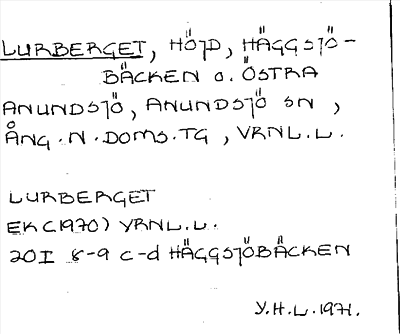 LURBERGET, HÖJD, HÄGGSJÖ-
BÄCKEN O. ÖSTRA
ANUNDSJÖ, ANUNDSJÖ SN,
ÅNG.N.DOMS.TG, VRNL.L.
LURBERGET
EK (1970) VRNL.L.
20I 8-9 c-d HÄGGSJÖBÄCKEN
Y.H.L. 1971.